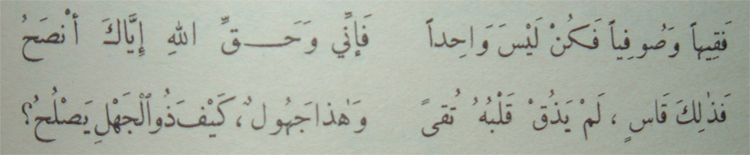 فَقِيهاً وَصُوفِياً فَكُنْ لَيْسَ وَاحِداً فَإِنِّي وَحَقِّ اللهِ إِيَّاكَ أَنْصَحُ
فَذٰلِكَ قَاسٍ، لَمْ يَذُقْ قَلْبُهُ تُقىً وَهٰذا جَهُولٌ، كَيْفَ ذُو الْجَهْلِ يَصْلُحُ؟